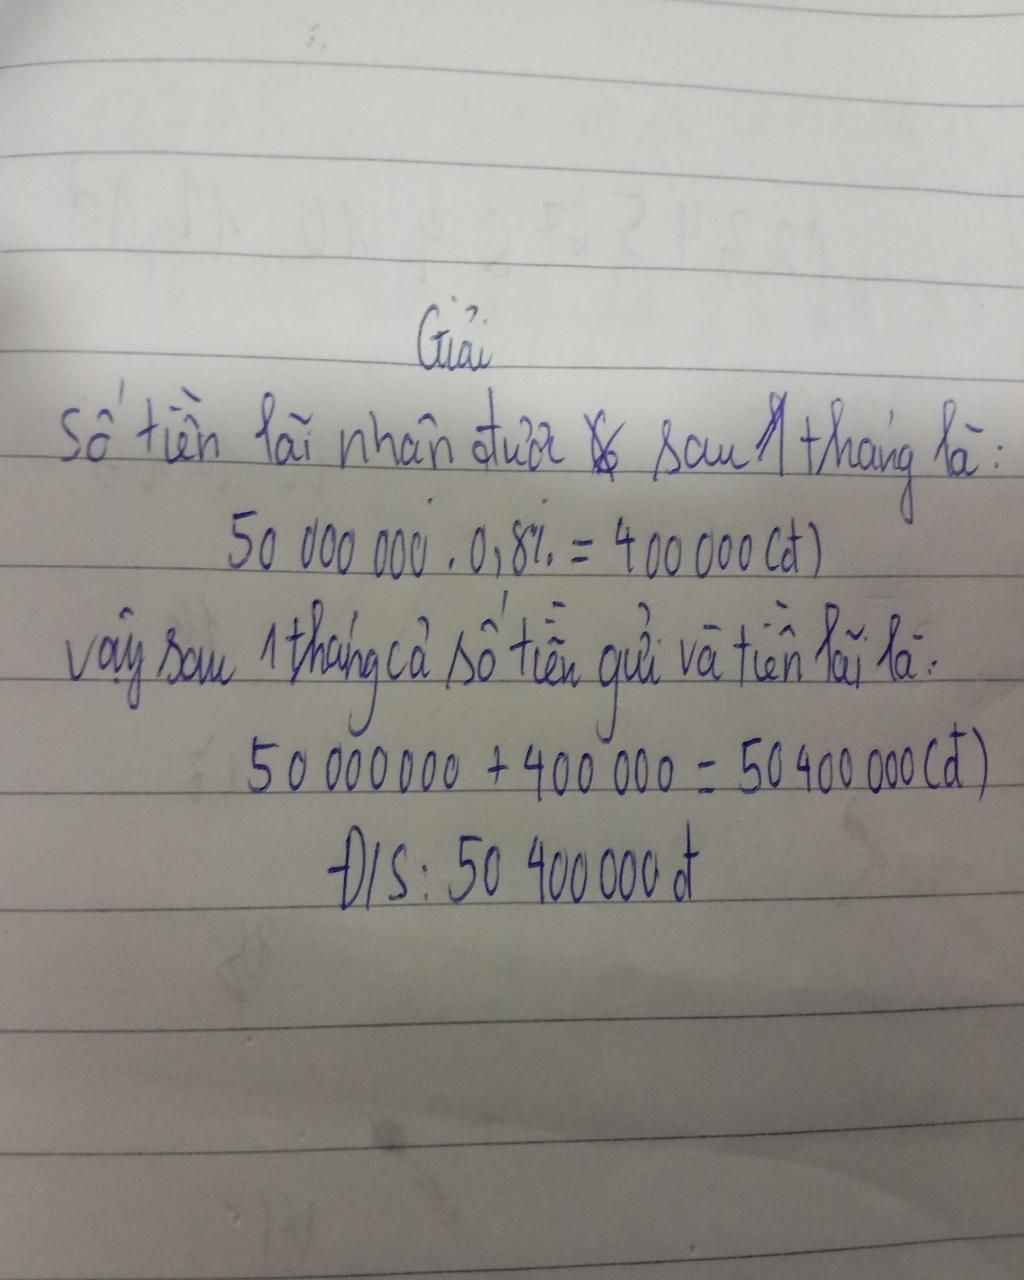 Giải
Số tiền lãi nhận được sau 1 tháng là:
50 000 000 . 0,8% = 400 000 (đ)
Vậy sau 1 tháng cả số tiền gửi và tiền lãi là:
50 000 000 + 400 000 = 50 400 000 (đ)
Đ/S: 50 400 000 đ